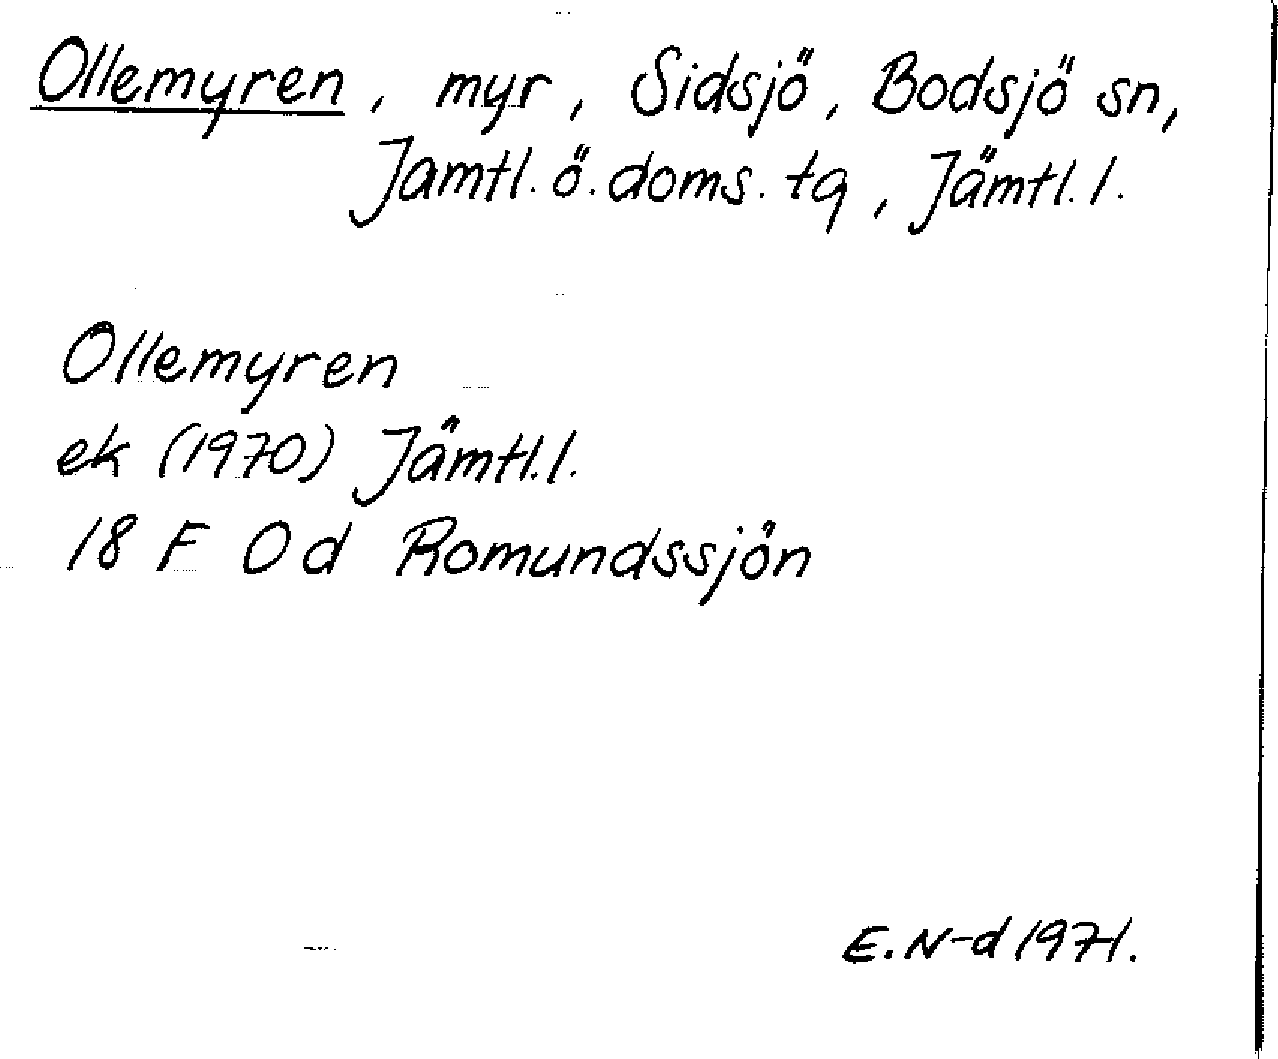 Ollemyren, myr, Sidsjö, Bodsjö sn,
Jamtl. ö. doms. tg, Jämtl. l.
Ollemyren
ek (1970) Jämtl. l.
18 F 0 d Romundssjön
E. N-d 1971.